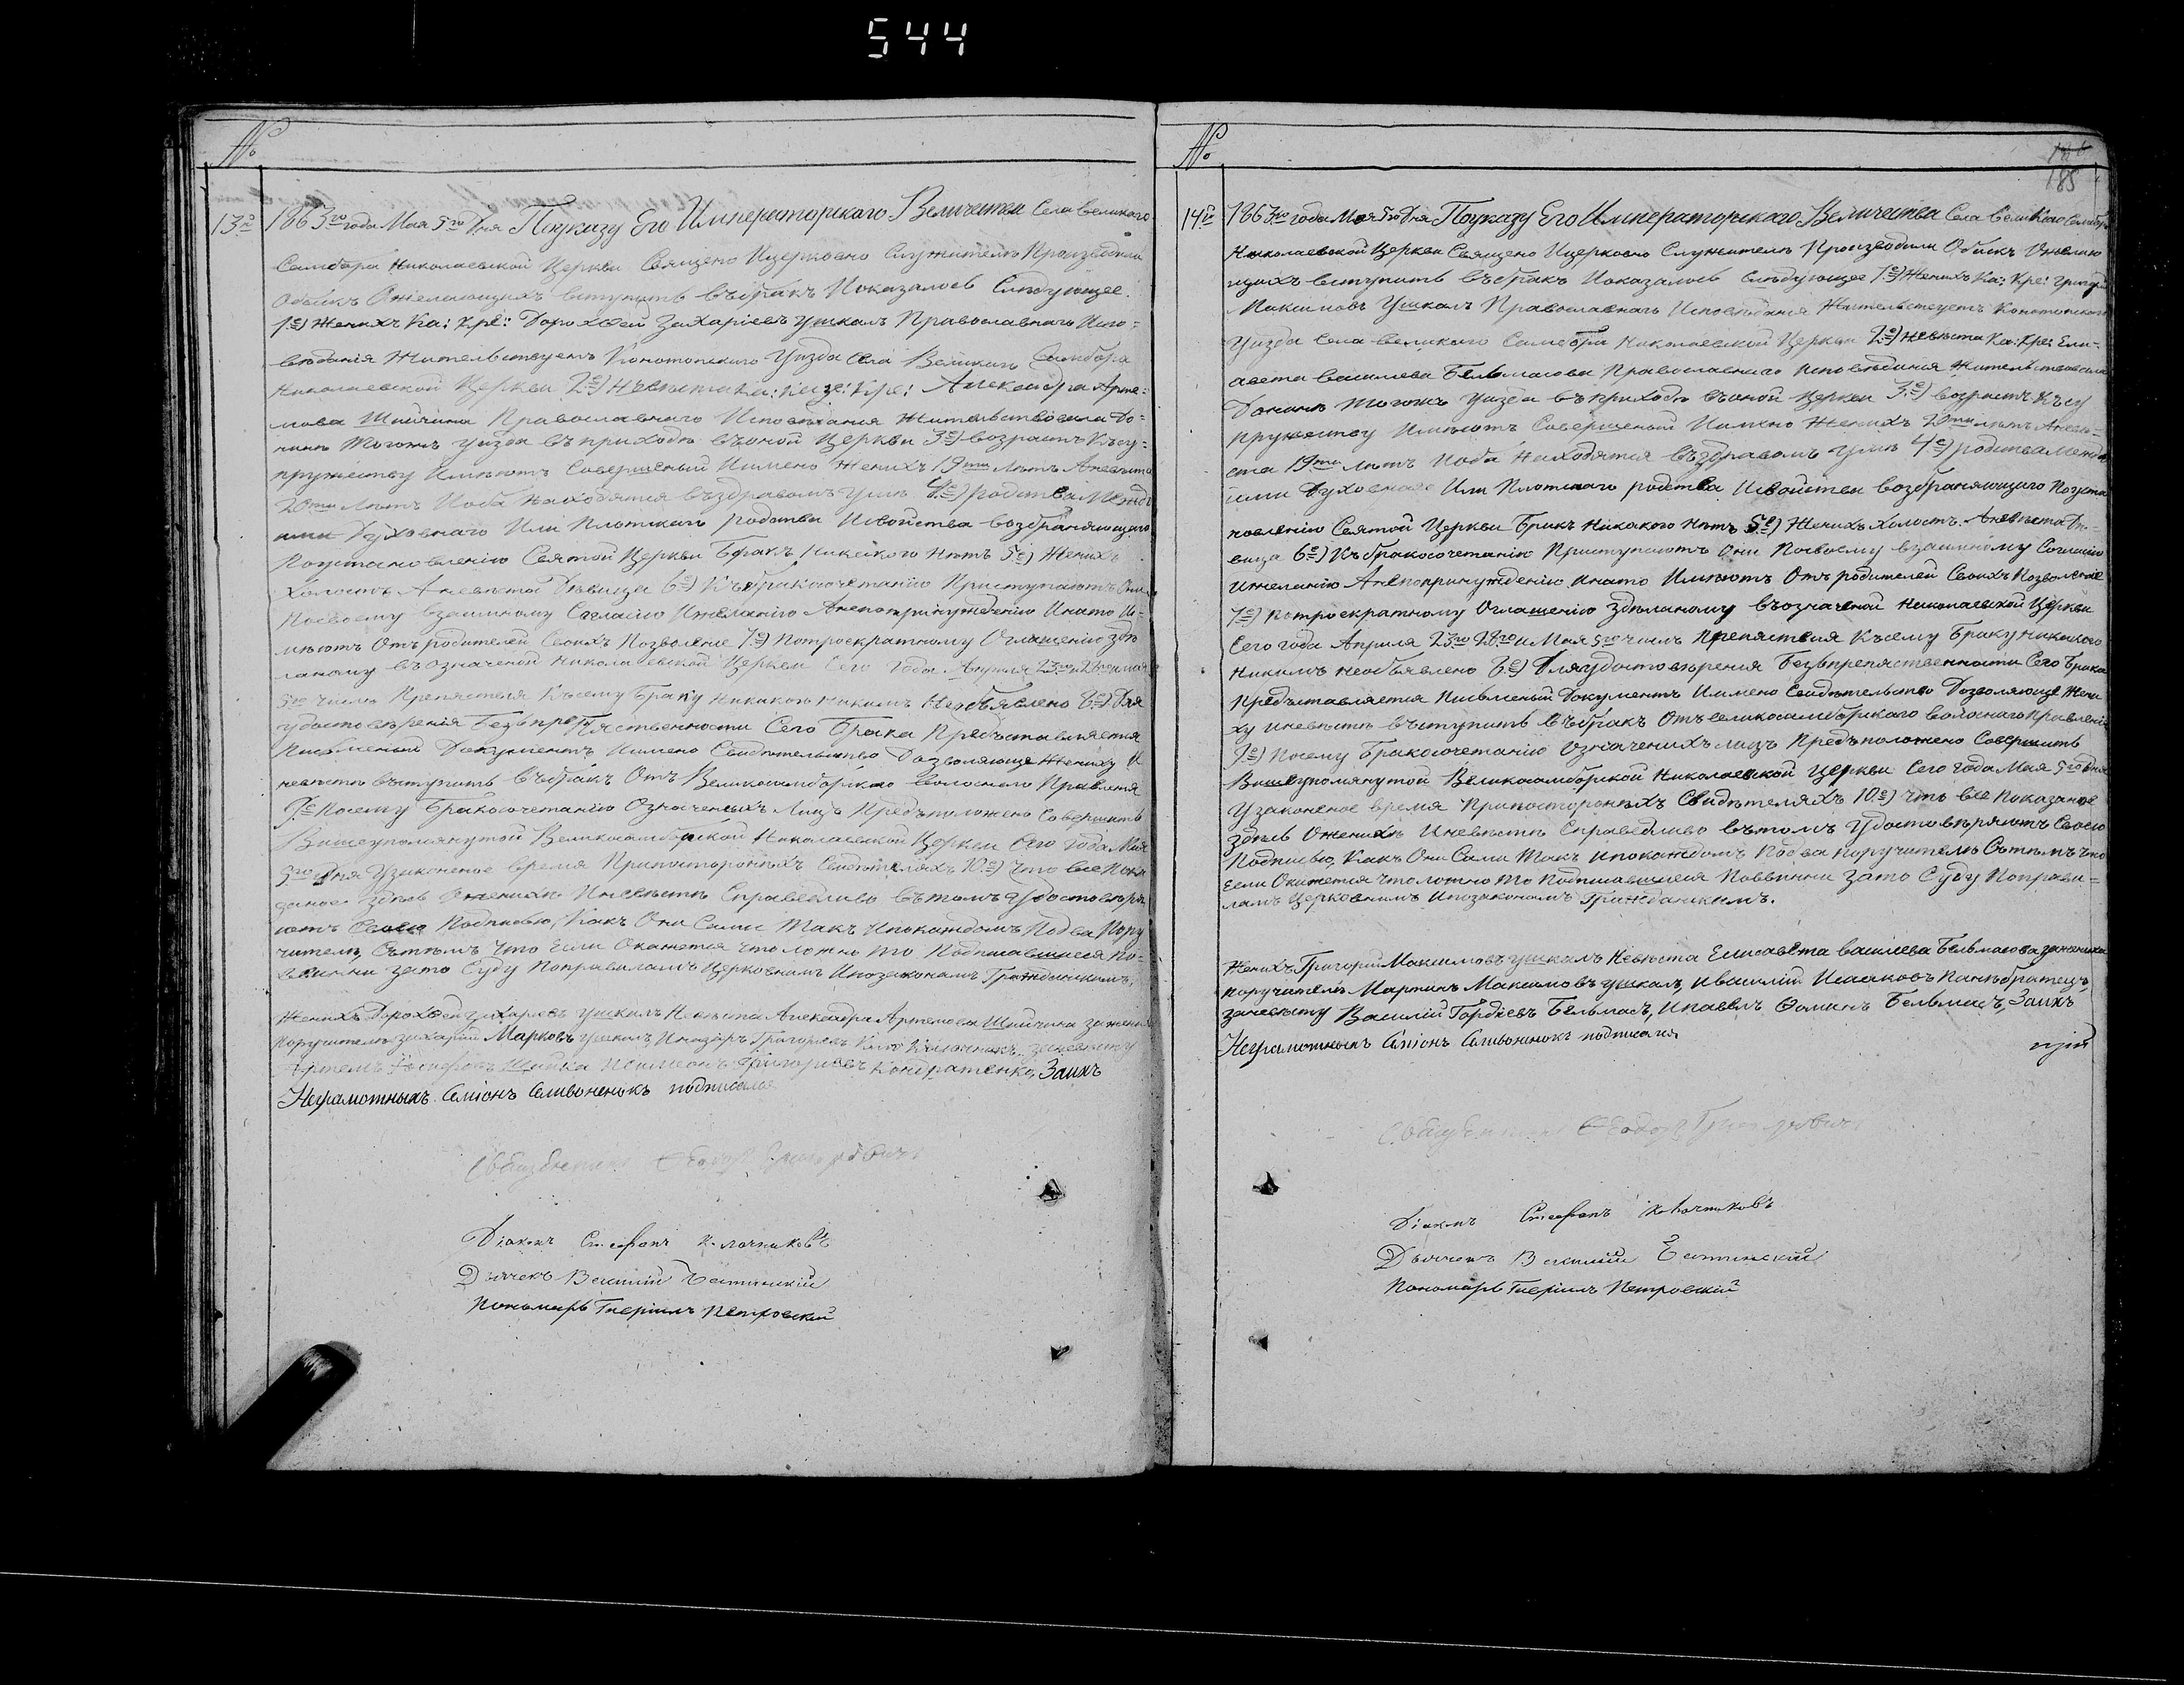 544
№
13й 1863го года Мая 5го Дня По указу Его Императорскаго Величества Села великаго
Самбора Николаевской Церкви Священо Ицерковно Служители Производили
Обыскъ Ожелающихъ вступить въбракъ Иоказалось Следующее.
1е) Женихъ Ка: Кре: Дорофей Захаріевъ Ушкалъ Православнаго Испо=
веданія Жительствуетъ Конотопскаго Уизда Села Великаго Самбора
Николаевской Церкви 2е) Невѣста Ка: Кре: Александра Арте=
мова Шийчина Православнаго Исповѣданія Жительствовала До=
нинѣ Тогожъ уизда въ приходѣ въоной Церкви 3е) возрастъ Късу=
пружеству Имѣютъ Совершеный Иимено Женихъ 19ти Лѣтъ Аневѣста
20ти Лѣтъ Иоба Находятся въздравомъ умѣ 4е) родства Между
ими Духовнаго Или Плотскаго родства Исвойства возбраняющаго
Поустановленію Святой Церкви Бракъ Никакого Нѣтъ 5е) Женихъ
Холостъ Аневѣста Дѣвица 6е) Къбракосочетанію Приступаютъ Они
Посвоему взаимному Согласію Ижеланію Анепопринужденію Инато И=
мѣютъ Отъ родителей Своихъ Позволеніе 7е) Потроекратному Оглашенію здѣ
ланому въозначеной Николаевской Церкви Сего года Априля 23го, 28го и мая
5го числъ Препяствія Късему Браку Никакого Никимъ Необъявлено 8е) Для
удостовѣренія Безъпрепяственности Сего Брака Предъставляется
Писменый Документъ Иимено Свидѣтельство Дозволяюще Жениху И
невѣстѣ въступить въбракъ Отъ Великосамборскаго волоснаго Правленія
9е Посему Бракосочетанію Означеныхъ Лицъ Предъположено Совершить
Вишеупомянутой Великосамборской Николаевской Церкви Сего года Мая
5го Дня Узаконеное время Припостороныхъ Свидѣтеляхъ 10е) Что все Пока
заное здѣсь Оженихѣ Иневѣстѣ Справедливо въ томъ удостовѣря
ютъ Своею Подписью, Какъ Они Сами Такъ Ипокаждомъ Подва Пору
чителѣ, Сътѣмъ Что Если Окажется что ложно то Подписавшиеся По=
винни зато Суду Поправиламъ Церковнымъ Ипозаконамъ Гражданскимъ.
Женихъ Дорофей Захаріевъ Ушкалъ Невѣста Александра Артемова Шийчина зажениха
Поручители Захарій Марковъ Ушкалъ, Иназаръ Григорьевъ заневѣсту
Артемъ Шийка Исимеонъ Григориевъ Кондратенко, Заихъ
Неграмотныхъ Симіонъ Сливоненокъ подписался
Священникъ Ѳеодоръ
Діаконъ Стефанъ Ключниковъ
Дьячекъ Василій
Пономарь Гавріилъ Петровскій
№
185
14й 1863го года Мая 5го Дня По указу Его Императорскаго Величества Села великаго Самбора
Николаевской Церкви Священо Ицерковно Служители Производили Обыскъ Ожелаю
щихъ вступить въбракъ Иоказалось Следующее 1е) Женихъ Ка: Кре: Григорій
Максимовъ Ушкалъ Православнаго Исповѣданія Жительствуетъ Конотопскаго
Уизда Села великаго Самбора Николаевской Церкви 2е) Невѣста Ка: Кре: Ели=
савета Василева Бельмасова Православнаго Исповѣданія Жительствовала
Донинѣ Тогожъ уизда въ приходѣ въоной Церкви 3е) возрастъ Късу
пружеству Имѣютъ Совершеный Иимено Женихъ 20ти лѣтъ Аневѣ=
ста 19ти лѣтъ Иоба Находятся въздравомъ умѣ 4е) родства Между
ими Духовнаго Или Плотскаго родства Исвойства возбраняющаго Поуста
новленію Святой Церкви Бракъ Никакого Нѣтъ 5е) Женихъ Холостъ. Аневѣста Дѣ=
вица 6е) Къбракосочетанію Приступаютъ Они Посвоему взаимному Согласію
Ижеланію Анепопринужденію Инато Имѣютъ Отъ родителей Своихъ Позволеніе
7е) Потроекратному Оглашенію здѣланому въозначеной Николаевской Церкви
Сего года Априля 23го 28го и Мая 5го числъ Препяствія Късему Браку Никакого
Никимъ Необъявлено 8е) Для удостовѣрения Безъпрепяственности Сего Брака
Предъставляется Писменый Документъ Иимено Свидѣтельство Дозволяюще Жени
ху Иневѣстѣ въступить въбракъ Отъ великосамборскаго волоснаго Правленія
9е) Посему Бракосочетанію Означенихъ лицъ Предъположено Совершить
Вишеупомянутой Великосамборской Николаевской Церкви Сего года Мая 5го Дня
Узаконеное время Припостороныхъ Свидѣтеляхъ 10е) Что все Показаное
здѣсь Оженихѣ Иневѣстѣ Справедливо вътомъ Удостовѣряютъ Своею
Подписью, Какъ Они Сами Такъ Ипокаждомъ Подва поручителѣ Сътѣмъ что
Если Окажется что ложно то Подписавшиеся Повинни зато Суду Поправи=
ламъ Церковнимъ Ипозаконамъ Гражданскимъ.
Женихъ Григорій Максимовъ Ушкалъ Невѣста Елисавѣта Василева Бельмасова зажениха
поручители Мартинъ Максимовъ Ушкалъ, Ивасилій Исааковъ Панибратецъ,
заневѣсту Василій Гордѣевъ Бельмасъ, Ипавелъ Ѳоминъ Бельмасъ, Заихъ
Неграмотныхъ Симіонъ Сливоненокъ подписался
Священникъ Ѳеодоръ
Діаконъ Стефанъ Ключниковъ
Дьячекъ Василій
Пономарь Гавріилъ Петровскій